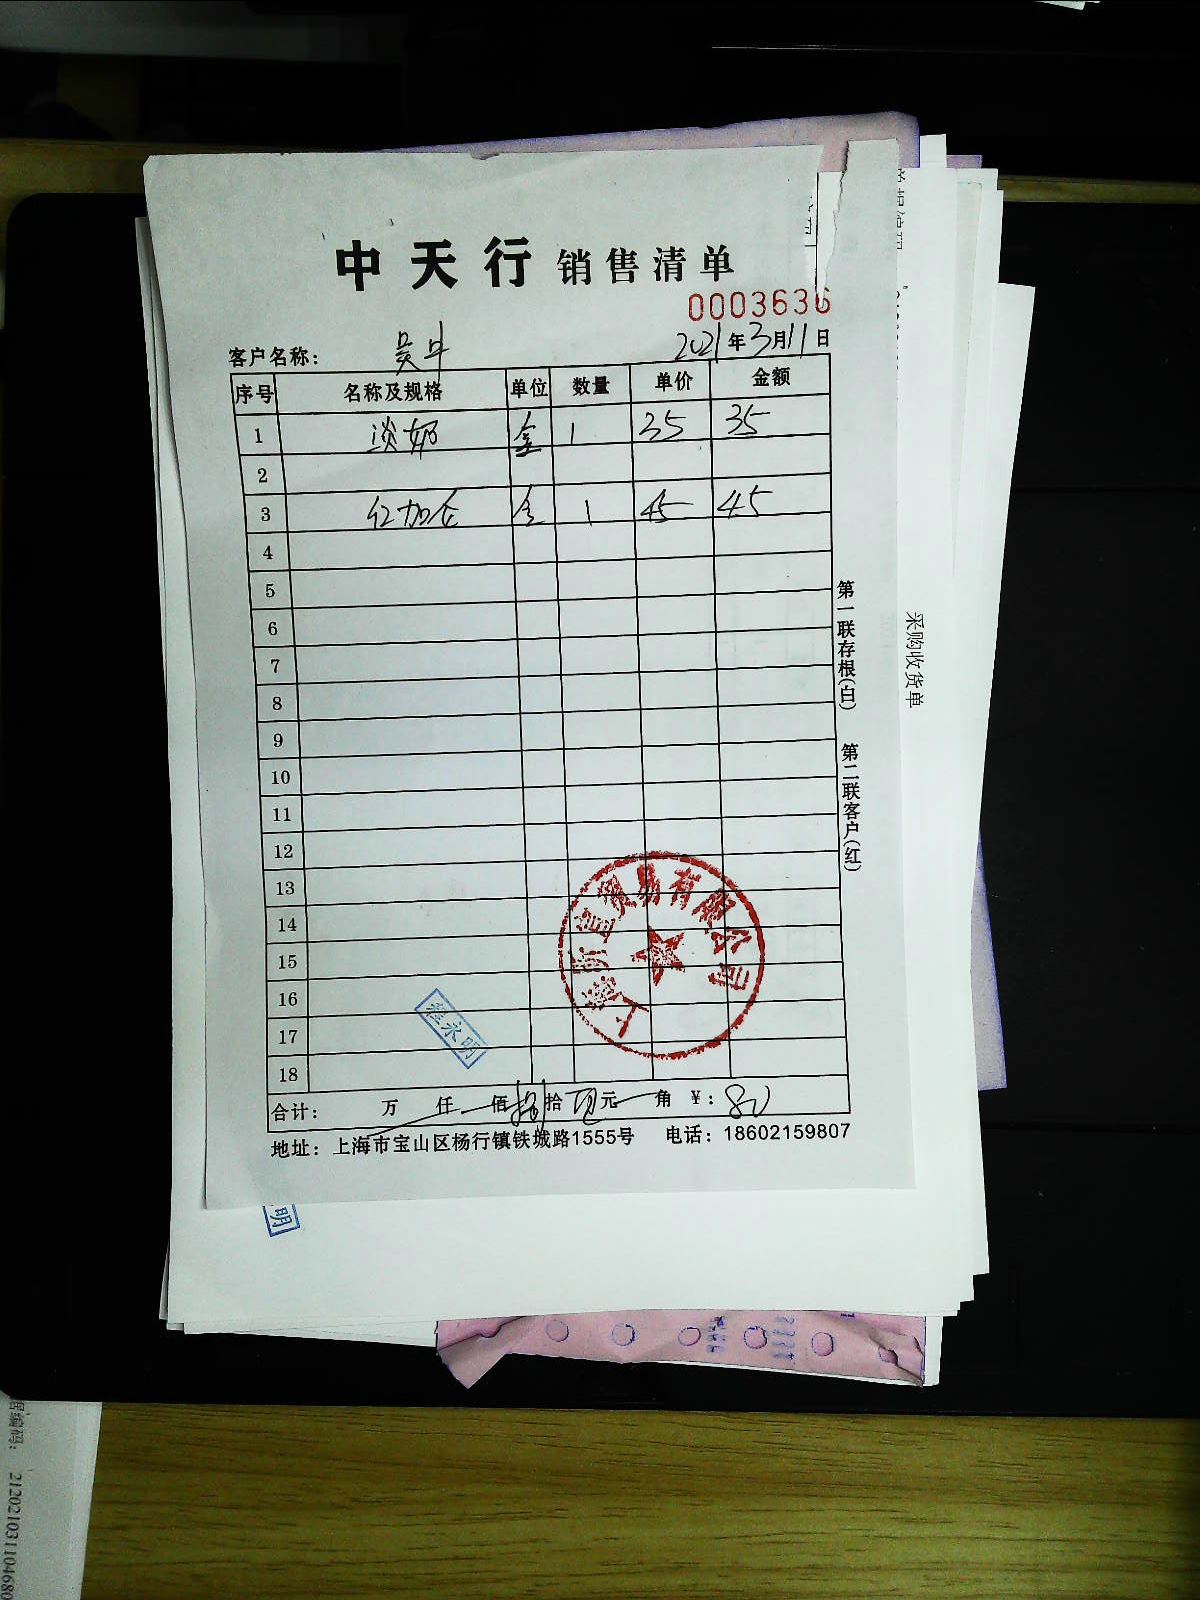 中天行 销售清单
0003636
客户名称： 吴中 2021年3月11日
序号 名称及规格 单位 数量 单价 金额
1 淡奶 盒 1 35 35
2
3 红加仑 盒 1 45 45
4
5
6
7
8
9
10
11
12
13
14
15
16
17
18
合计： 万 仟 佰 捌拾 元 角 ¥：80
地址：上海市宝山区杨行镇铁城路1555号 电话：18602159807
第一联存根(白) 第二联客户(红)
贸易有限公司
程永明
采购收货单
明
编码： 212021031104680